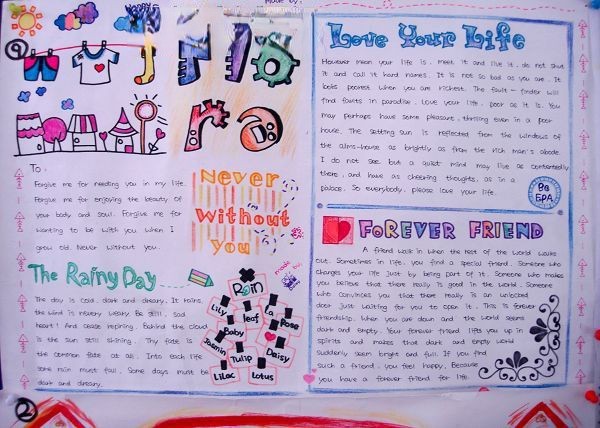 1
HAPPY
made by:
Flo
ra
To.
Forgive me for needing you in my life.
Forgive me for enjoying the beauty of
your body and soul. Forgive me for
wanting to be with you when I
grow old. Never without you.
Never
Without
you
The Rainy Day
The day is cold, dark and dreary. It rains,
the wind is never weary. Be still, sad
heart! And cease repining. Behind the cloud
is the sun still shining. Thy fate is
the common fate of all. Into each life
some rain must fall. Some days must be
dark and dreary.
made by
Rain
Lily
leaf
La
Rose
Baby
Jasmin
Tulip
Daisy
Lilac
Lotus
Love Your Life
However mean your life is, meet it and live it, do not shut
it and call it hard names. It is not so bad as you are. It
looks poorest when you are richest. The fault-finder will
find faults in paradise. Love your life, poor as it is. You
may perhaps have some pleasant, thrilling even in a poor
house. The setting sun is reflected from the windows of
the alms-house as brightly as from the rich man's abode.
I do not see but a quiet mind may live as contentedly
there, and have as cheering thoughts, as in a
palace. So everybody, please love your life.
FOREVER FRIEND
A friend walk in when the rest of the world walks
out. Sometimes in life, you find a special friend. Someone who
changes your life just by being part of it. Someone who makes
you believe that there really is good in the world. Someone
who convinces you that there really is an unlocked
door just waiting for you to open it. This is forever
friendship. When you are down and the world seems
dark and empty. Your forever friend lifts you up in
spirits and makes that dark and empty world
suddenly seem bright and full. If you find
such a friend, you feel happy, Because
you have a forever friend for life.
2